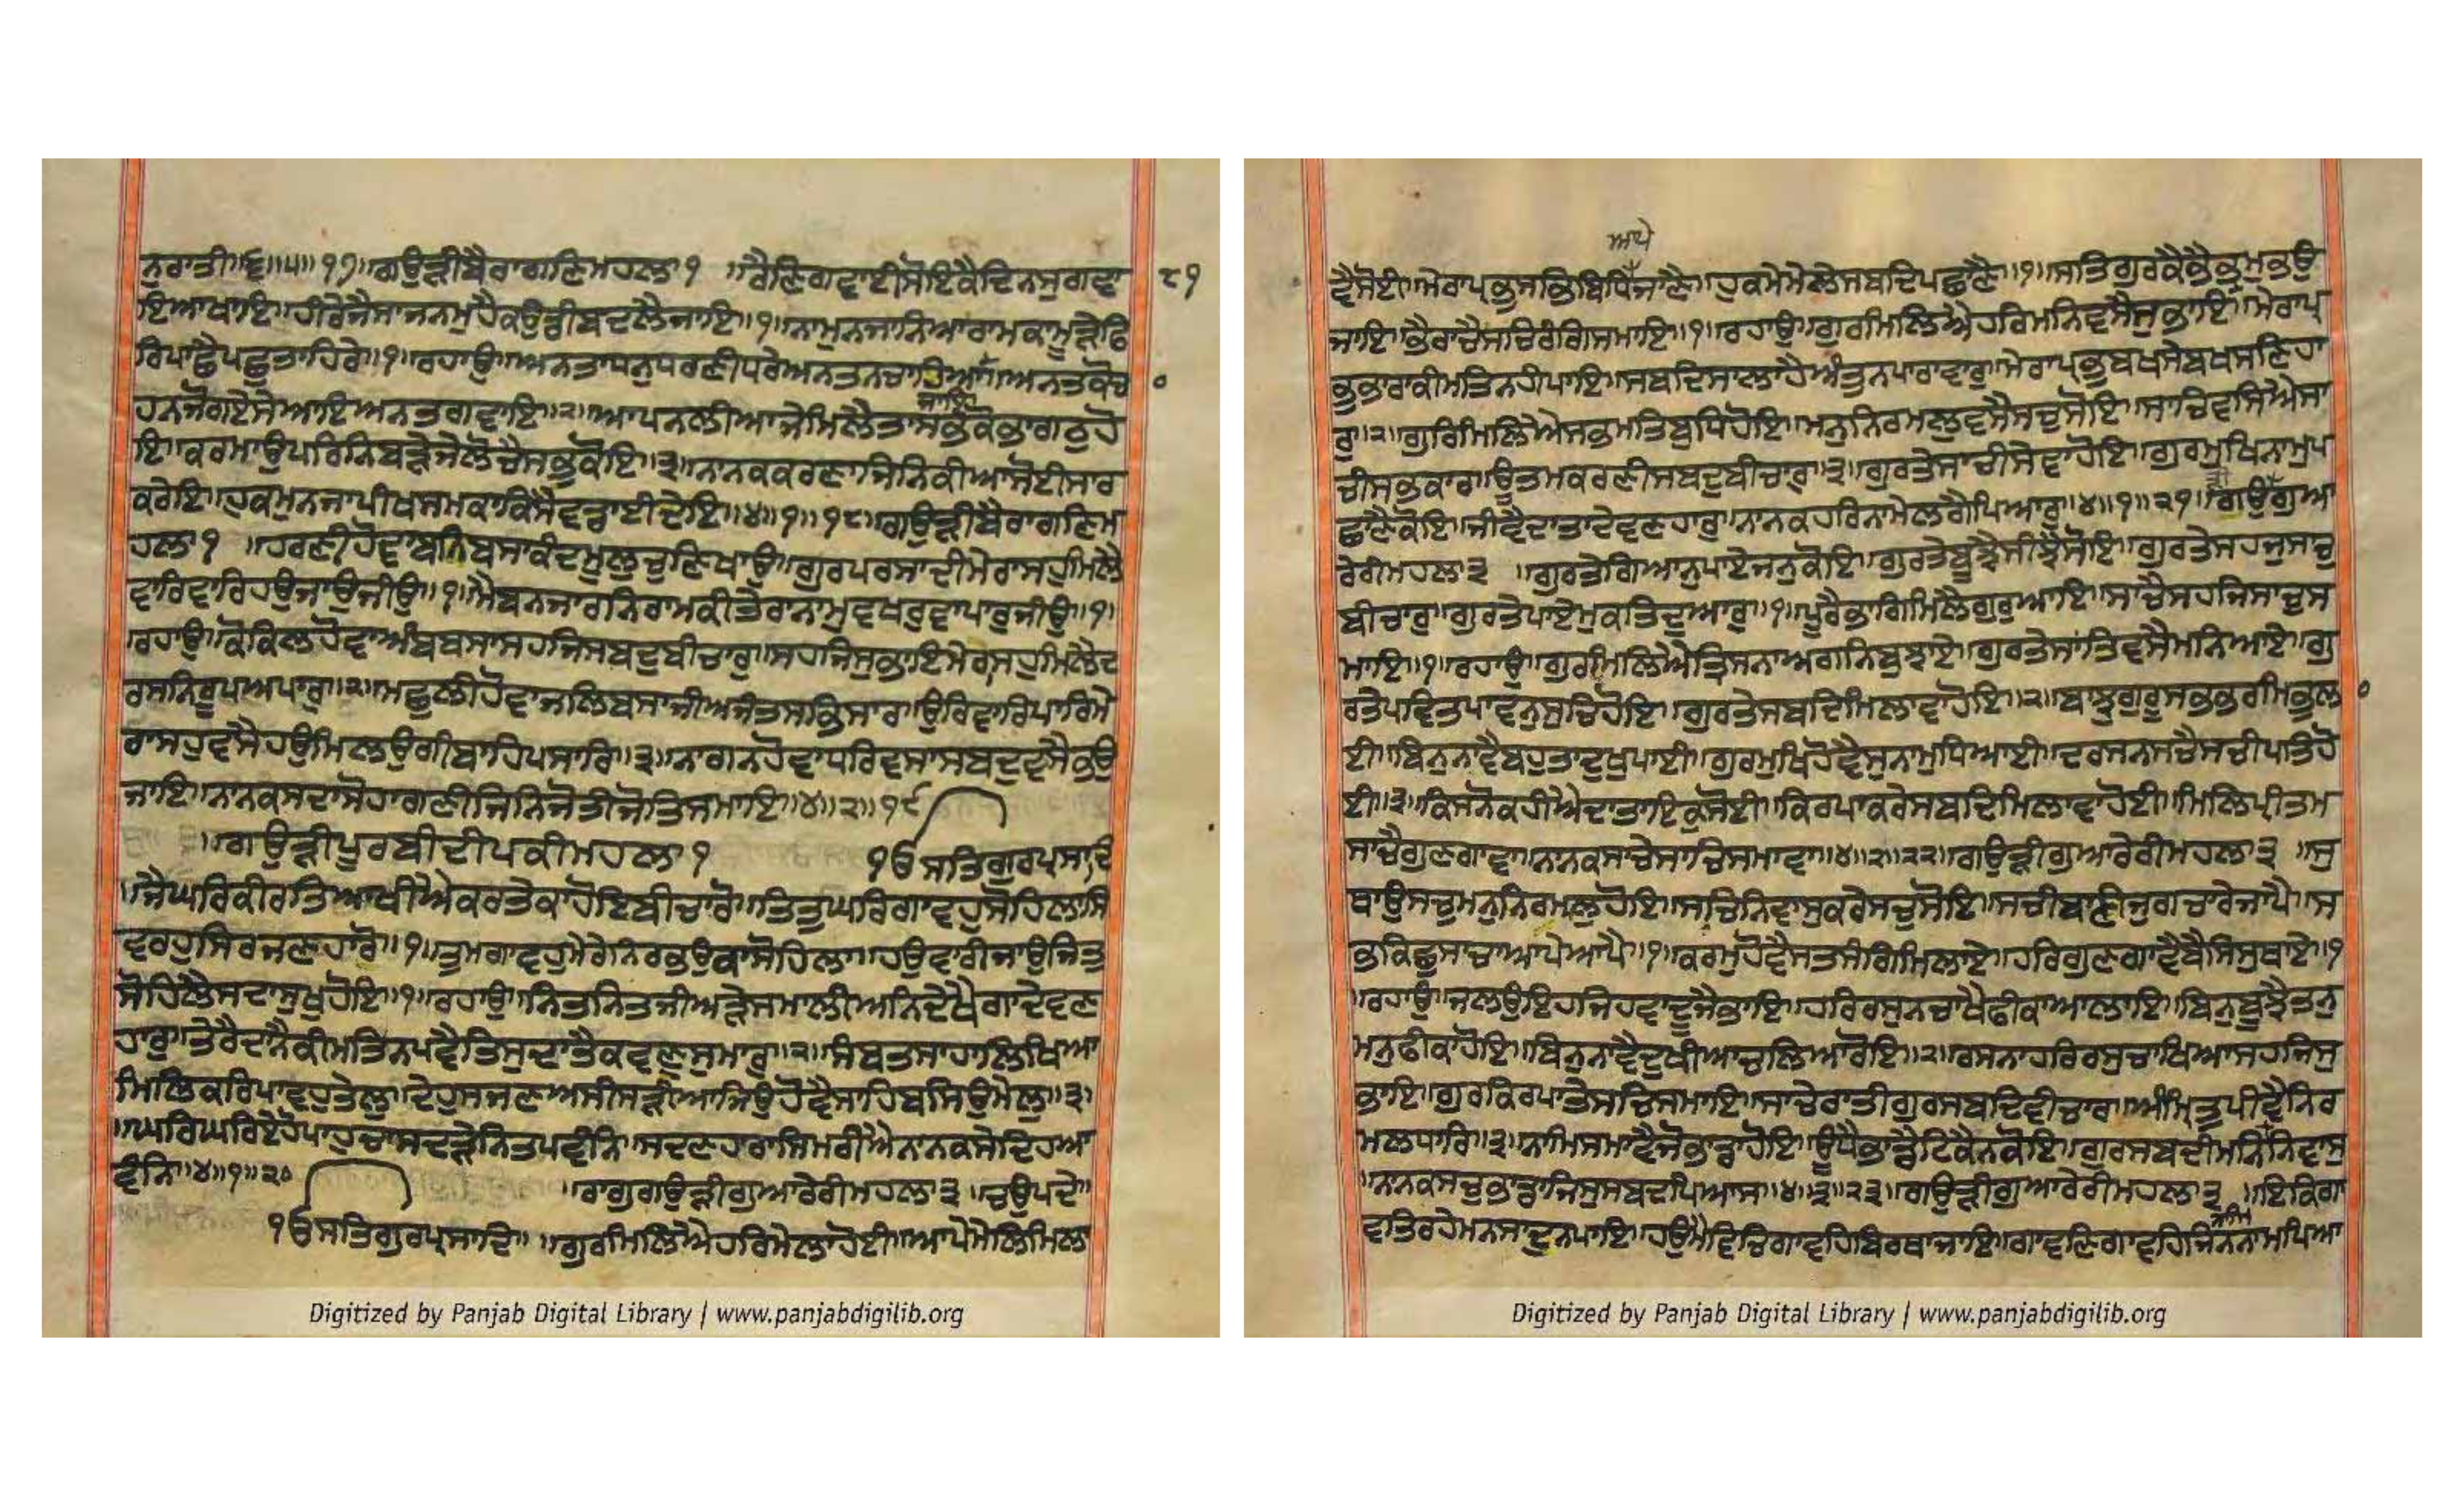 ਨੁਰਾਤੀ॥੬॥੫॥੧੭॥ਗਉੜੀਬੈਰਾਗਣਿਮਹਲਾ੧ ॥ਰੈਣਿਗਵਾਈਸੋਇਕੈਦਿਨਸੁਗਵਾ
੮੧
ਇਆਖਾਇ॥ਹੀਰੇਜੈਸਾਜਨਮੁਹੈਕਉਡੀਬਦਲੈਜਾਇ॥੧॥ਨਾਮੁਨਜਾਨਿਆਰਾਮਕਾਮੂੜੇਫਿ
ਰਿਪਾਛੈਪਛੁਤਾਹਿਰੇ॥੧॥ਰਹਾਉ॥ਅਨਤਾਧਨੁਧਰਣੀਧਰੇਅਨਤਨਚਾਹਿਆ
ਜਾਇ॥ਅਨਤਕੋਚ
ਹਨਜੋਗਏਸੇਆਇਅਨਤਗਵਾਇ॥੨॥ਆਪਨਲੀਆਜੇਮਿਲੈਤਾਸਭਕੋਭਾਗਠੁਹੋ
ਇ॥ਕਰਮਾਉਪਰਿਨਿਬੜੇਜੇਲੋਚੈਸਭੁਕੋਇ॥੩॥ਨਾਨਕਕਰਣਾਜਿਨਿਕੀਆਸੋਈਸਾਰ
ਕਰੇਇ॥ਹੁਕਮੁਨਜਾਪੀਖਸਮਕਾਕਿਸੈਵਡਾਈਦੇਇ॥੪॥੧॥੧੮॥ਗਉੜੀਬੈਰਾਗਣਿਮ
ਹਲਾ੧ ॥ਹਰਣੀਹੋਵਾਬਨਿਬਸਾਕੰਦਮੂਲੁਚੁਣਿਖਾਉ॥ਗੁਰਪਰਸਾਦੀਮੇਰਾਸਹੁਮਿਲੈ
ਵਾਰਿਵਾਰਿਹਉਜਾਉਜੀਉ॥੧॥ਮੈਬਨਜਾਰਨਿਰਾਮਕੀਤੇਰਾਨਾਮੁਵਖਰੁਵਾਪਾਰੁਜੀਉ॥੧॥
ਰਹਾਉ॥ਕੋਕਿਲਹੋਵਾਅੰਬਬਸਾਸਹਜਿਸਬਦਬੀਚਾਰੁ॥ਸਹਜਿਸੁਭਾਇਮੇਰਾਸਹੁਮਿਲੈਦ
ਰਸਨਿਰੂਪਅਪਾਰੁ॥੨॥ਮਛੁਲੀਹੋਵਾਜਲਿਬਸਾਜੀਅਜੰਤਸਭਿਸਾਰ॥ਉਰਿਵਾਰਿਪਾਰਿਮੇ
ਰਾਸਹੁਵਸੈਹਉਮਿਲਉਗੀਬਾਹਿਪਸਾਰਿ॥੩॥ਨਾਗਨਹੋਵਾਧਰਿਵਸਾਸਬਦੁਵਸੈਭਉ
ਜਾਇ॥ਨਾਨਕਸਦਾਸੋਹਾਗਣੀਜਿਨਿਜੋਤੀਜੋਤਿਸਮਾਇ॥੪॥੨॥੧੯
॥ਗਉੜੀਪੂਰਬੀਦੀਪਕੀਮਹਲਾ੧ ੴਸਤਿਗੁਰਪ੍ਰਸਾਦਿ
॥ਜੈਘਰਿਕੀਰਤਿਆਖੀਐਕਰਤੇਕਾਹੋਇਬੀਚਾਰੋ॥ਤਿਤੁਘਰਿਗਾਵਹੁਸੋਹਿਲਾਸਿ
ਵਰਹੁਸਿਰਜਣਹਾਰੋ॥੧॥ਤੁਮਗਾਵਹੁਮੇਰੇਨਿਰਭਉਕਾਸੋਹਿਲਾ॥ਹਉਵਾਰੀਜਾਉਜਿਤੁ
ਸੋਹਿਲੈਸਦਾਸੁਖੁਹੋਇ॥੧॥ਰਹਾਉ॥ਨਿਤਨਿਤਜੀਅੜੇਸਮਾਲੀਅਨਿਦੇਖੈਗਾਦੇਵਣ
ਹਾਰੁ॥ਤੇਰੈਦਾਨੈਕੀਮਤਿਨਪਵੈਤਿਸੁਦਾਤੈਕਵਣੁਸੁਮਾਰੁ॥੨॥ਸੰਬਤਸਾਹਾਲਿਖਿਆ
ਮਿਲਿਕਰਿਪਾਵਹੁਤੇਲੁ॥ਦੇਹੁਸਜਣਅਸੀਸੜੀਆਜਿਉਹੋਵੈਸਾਹਿਬਸਿਉਮੇਲੁ॥੩॥
॥ਘਰਿਘਰਿਏਹੋਪਾਹੁਚਾਸਦੜੇਨਿਤਪਵੰਨਿ॥ਸਦਣਹਾਰਾਸਿਮਰੀਐਨਾਨਕਸੇਦਿਹਆ
ਵੰਨਿ॥੪॥੧॥੨੦ ॥ਰਾਗੁਗਉੜੀਗੁਆਰੇਰੀਮਹਲਾ੩ ॥ਚਉਪਦੇ॥
ੴਸਤਿਗੁਰਪ੍ਰਸਾਦਿ॥ ॥ਗੁਰਮਿਲਿਐਹਰਿਮੇਲਾਹੋਈ॥ਆਪੇਮੇਲਿਮਿਲਾ
Digitized by Panjab Digital Library | www.panjabdigilib.org
ਆਪੇ
ਵੈਸੋਈ॥ਮੇਰਾਪ੍ਰਭੁਸਭਿਬਿਧਿਜਾਣੈ॥ਹੁਕਮੇਮੇਲੇਸਬਦਿਪਛਾਣੈ॥੧॥ਸਤਿਗੁਰਕੈਭੈਭ੍ਰਮੁਭਉ
ਜਾਇ॥ਭੈਰਾਚੈਸਚਿਰੰਗਿਸਮਾਇ॥੧॥ਰਹਾਉ॥ਗੁਰਮਿਲਿਐਹਰਿਮਨਿਵਸੈਸੁਭਾਇ॥ਮੇਰਾਪ੍ਰ
ਭੁਭਾਰਾਕੀਮਤਿਨਹੀਪਾਇ॥ਸਬਦਿਸਾਲਾਹੈਅੰਤੁਨਪਾਰਾਵਾਰੁ॥ਮੇਰਾਪ੍ਰਭੁਬਖਸੇਬਖਸਣਿਹਾ
ਰੁ॥੨॥ਗੁਰਿਮਿਲਿਐਸਭਮਤਿਬੁਧਿਹੋਇ॥ਮਨੁਨਿਰਮਲੁਵਸੈਸਚੁਸੋਇ॥ਸਾਚਿਵਸਿਐਸਾ
ਚੀਸਭਕਾਰ॥ਊਤਮਕਰਣੀਸਬਦੁਬੀਚਾਰੁ॥੩॥ਗੁਰਤੇਸਾਚੀਸੇਵਾਹੋਇ॥ਗੁਰਮੁਖਿਨਾਮੁਪ
ਛਾਣੈਕੋਇ॥ਜੀਵੈਦਾਤਾਦੇਵਣਹਾਰੁ॥ਨਾਨਕਹਰਿਨਾਮੇਲਗੈਪਿਆਰੁ॥੪॥੧॥੨੧॥ਗਉਗੁਆ
ਰੇਰੀਮਹਲਾ੩ ॥ਗੁਰਤੇਗਿਆਨੁਪਾਏਜਨੁਕੋਇ॥ਗੁਰਤੇਬੂਝੈਸੀਝੈਸੋਇ॥ਗੁਰਤੇਸਹਜੁਸਾਚੁ
ਬੀਚਾਰੁ॥ਗੁਰਤੇਪਾਏਮੁਕਤਿਦੁਆਰੁ॥੧॥ਪੂਰੈਭਾਗਿਮਿਲੈਗੁਰੁਆਇ॥ਸਾਚੈਸਹਜਿਸਾਚੁਸ
ਮਾਇ॥੧॥ਰਹਾਉ॥ਗੁਰਮਿਲਿਐਤ੍ਰਿਸਨਾਅਗਨਿਬੁਝਾਏ॥ਗੁਰਤੇਸਾਂਤਿਵਸੈਮਨਿਆਏ॥ਗੁ
ਰਤੇਪਵਿਤਪਾਵਨੁਸੁਚਿਹੋਇ॥ਗੁਰਤੇਸਬਦਿਮਿਲਾਵਾਹੋਇ॥੨॥ਬਾਝੁਗੁਰੂਸਭਭਰਮਿਭੁਲਾ
ਈ॥ਬਿਨੁਨਾਵੈਬਹੁਤਾਦੁਖੁਪਾਈ॥ਗੁਰਮੁਖਿਹੋਵੈਸੁਨਾਮੁਧਿਆਈ॥ਦਰਸਨਸਚੈਸਚੀਪਤਿਹੋ
ਈ॥੩॥ਕਿਸਨੋਕਹੀਐਦਾਤਾਇਕੁਸੋਈ॥ਕਿਰਪਾਕਰੇਸਬਦਿਮਿਲਾਵਾਹੋਈ॥ਮਿਲਿਪ੍ਰੀਤਮ
ਸਾਚੈਗੁਣਗਾਵਾ॥ਨਾਨਕਸਾਚੇਸਾਚਿਸਮਾਵਾ॥੪॥੨॥੨੨॥ਗਉੜੀਗੁਆਰੇਰੀਮਹਲਾ੩ ॥ਸੁ
ਥਾਉਸਚੁਮਨੁਨਿਰਮਲੁਹੋਇ॥ਸਚਿਨਿਵਾਸੁਕਰੇਸਚੁਸੋਇ॥ਸਚੀਬਾਣੀਜੁਗਚਾਰੇਜਾਪੈ॥ਸ
ਭਕਿਛੁਸਾਚਾਆਪੇਆਪੈ॥੧॥ਕਰਮੁਹੋਵੈਸਤਸੰਗਿਮਿਲਾਏ॥ਹਰਿਗੁਣਗਾਵੈਬੈਸਿਸੁਥਾਏ॥੧
॥ਰਹਾਉ॥ਜਲਉਇਹਜਿਹਵਾਦੂਜੈਭਾਇ॥ਹਰਿਰਸੁਨਚਾਖੈਫੀਕਾਆਲਾਇ॥ਬਿਨੁਬੂਝੈਤਨੁ
ਮਨੁਫੀਕਾਹੋਇ॥ਬਿਨੁਨਾਵੈਦੁਖੀਆਚਲਿਆਰੋਇ॥੨॥ਰਸਨਾਹਰਿਰਸੁਚਾਖਿਆਸਹਜਿਸੁ
ਭਾਇ॥ਗੁਰਕਿਰਪਾਤੇਸਚਿਸਮਾਇ॥ਸਾਚੇਰਾਤੀਗੁਰਸਬਦਿਵੀਚਾਰ॥ਅੰਮ੍ਰਿਤੁਪੀਵੈਨਿਰ
ਮਲਧਾਰਿ॥੩॥ਨਾਮਿਸਮਾਵੈਜੋਭਾਡਾਹੋਇ॥ਊਂਧੈਭਾਂਡੈਟਿਕੈਨਕੋਇ॥ਗੁਰਸਬਦੀਮਨਿਨਿਵਾਸੁ
॥ਨਾਨਕਸਚੁਭਾਂਡਾਜਿਸੁਸਬਦਪਿਆਸ॥੪॥੩॥੨੩॥ਗਉੜੀਗੁਆਰੇਰੀਮਹਲਾ੩ ॥ਇਕਿਗਾ
ਵਤਿਰਹੇਮਨਸਾਦੁਨਪਾਇ॥ਹਉਮੈਵਿਚਿਗਾਵਹਿਬਿਰਥਾਜਾਇ॥ਗਾਵਣਿਗਾਵਹਿਜਿਨਨਾਮਪਿਆ
Digitized by Panjab Digital Library | www.panjabdigilib.org